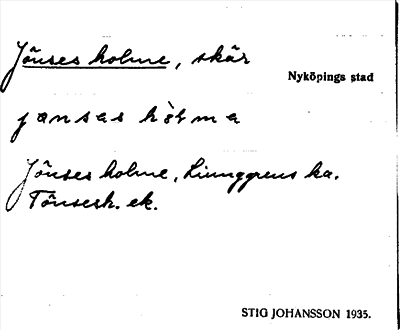 Jönses holme, skär
Nyköpings stad
jønsəs hòlma
Jönses holme, Liunggrens ka.
Tönsesh. ek.
STIG JOHANSSON 1935.